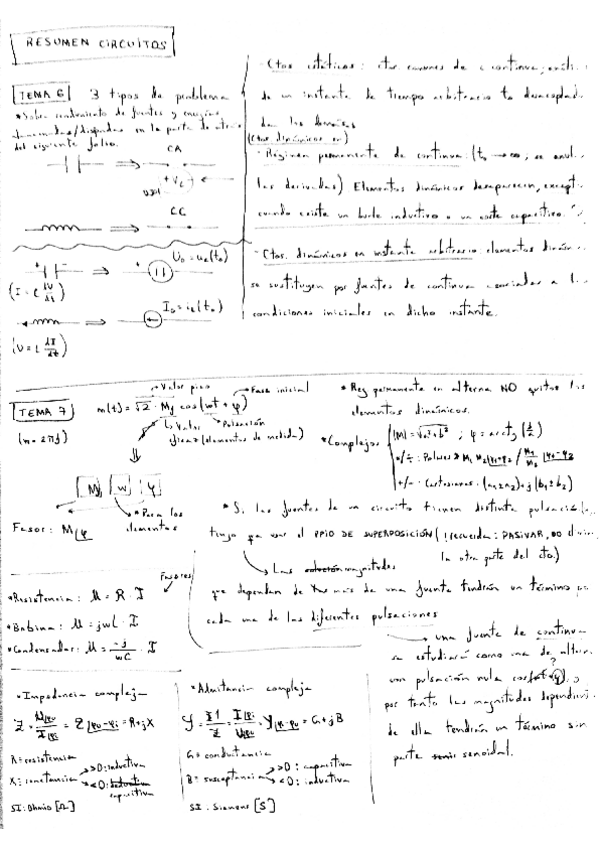 RESUMEN CIRCUITOS
TEMA 6 3 tipos de problema
*Sobre rendimiento de fuentes y energías
/disipadas en la parte de atrás
del siguiente folio.
CA
+ V_c
CC
U₀ = u_c(t₀)
(I = C dU/dt)
I₀ = i_L(t₀)
(U = L dI/dt)
Ctos estáticos: ctos comunes de c. continua,
de un instante de tiempo arbitrario ta
dan los demás
(Ctos. dinámicos en)
- Régimen permanente de continua: (t₀ → ∞, se anul
las derivadas) Elementos dinámicos desaparecen, except
cuando existe un bucle inductivo o un corte capacitivo.
- Ctos. dinámicos en instante arbitrario: elementos dinám
se sustituyen por fuentes de continua asociadas a l
condiciones iniciales en dicho instante.
Valor pico
Fase inicial
TEMA 7 m(t) = √2 · M cos(wt + φ)
(w = 2πf)
Valor Pulsación
eficaz (elementos de medida)
M w φ
Para los
elementos
Fasor: M∠φ
* Reg permanente en alterna NO quitas los
elementos dinámicos.
*Complejos |M| = √a²+b² ; φ = arctg (b/a)
*/÷ : Polares M₁M₂∠φ₁+φ₂ / M₁/M₂ ∠φ₁-φ₂
+/- : Cartesianas (a₁±a₂)+j(b₁±b₂)
* Si las fuentes de un circuito tienen distinta pulsación,
tengo que usar el PPIO DE SUPERPOSICIÓN (!recuerda: PASIVAR, no
la otra parte del cto.)
Las magnitudes
que dependan de más de una fuente tendrán un término po
cada una de las diferentes pulsaciones
una fuente de continua
se estudiará como una de altern
con pulsación nula
por tanto las magnitudes dependien
de ella tendrán un término sin
parte senoidal.
Fasores
*Resistencia: U = R · I
*Bobina: U = jwL · I
*Condensador: U = -j/wC · I
*Impedancia compleja
Z = U∠φu / I∠φi = Z∠φu-φi = R+jX
R = resistencia
X = reactancia >0: inductiva
<0: capacitiva
SI: Ohmio [Ω]
*Admitancia compleja
Y = 1/Z = I∠φi / U∠φu = Y∠φi-φu = G+jB
G = conductancia
B = susceptancia >0: capacitiva
<0: inductiva
SI: Siemens [S]